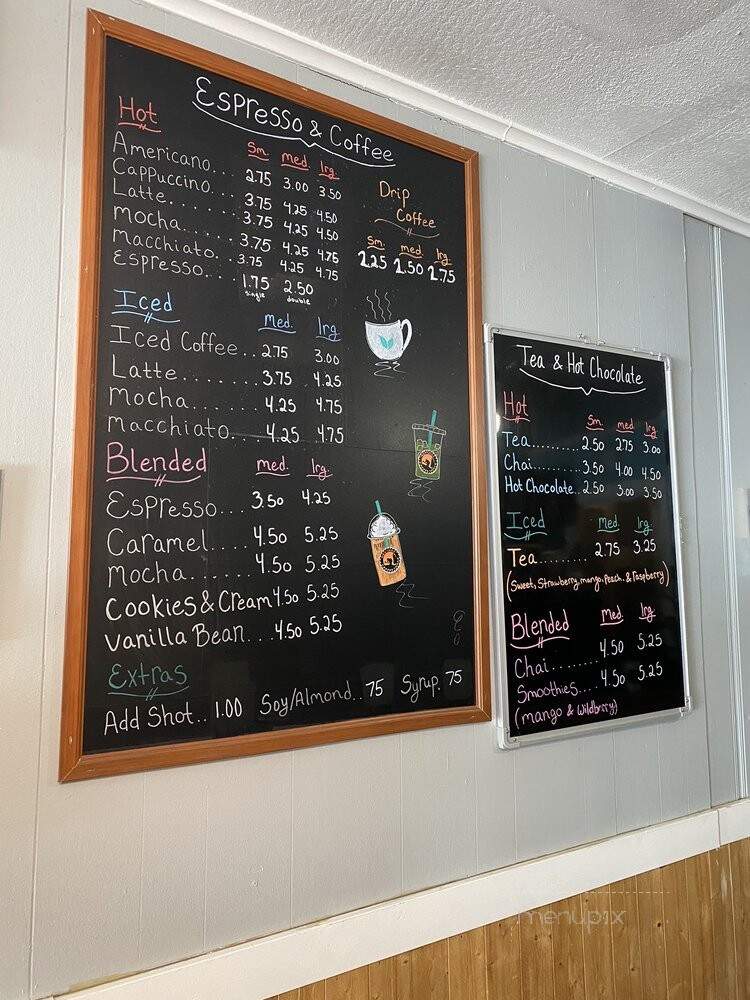 Espresso & Coffee
Hot
Sm. med. lrg.
Americano... 2.75 3.00 3.50
Cappuccino... 3.75 4.25 4.50
Latte....... 3.75 4.25 4.50
mocha...... 3.75 4.25 4.75
macchiato... 3.75 4.25 4.75
Espresso... 1.75 2.50
single double
Drip
Coffee
Sm. med. lrg.
1.25 1.50 1.75
Iced
Med. lrg.
Iced Coffee.. 2.75 3.00
Latte....... 3.75 4.25
mocha...... 4.25 4.75
macchiato... 4.25 4.75
Blended
med. lrg.
Espresso.... 3.50 4.25
Caramel.... 4.50 5.25
Mocha...... 4.50 5.25
Cookies & Cream 4.50 5.25
Vanilla Bean... 4.50 5.25
Extras
Add Shot.. 1.00 Soy/Almond.. 75 Syrup. 75
Tea & Hot Chocolate
Hot
Sm. med lrg.
Tea.......... 2.50 2.75 3.00
Chai.......... 3.50 4.00 4.50
Hot Chocolate.. 2.50 3.00 3.50
Iced
Med. lrg.
Tea.......... 2.75 3.25
(Sweet, Strawberry, mango, Peach, & raspberry)
Blended
Med. lrg.
Chai........ 4.50 5.25
Smoothies... 4.50 5.25
(mango & wildberry)
menupix